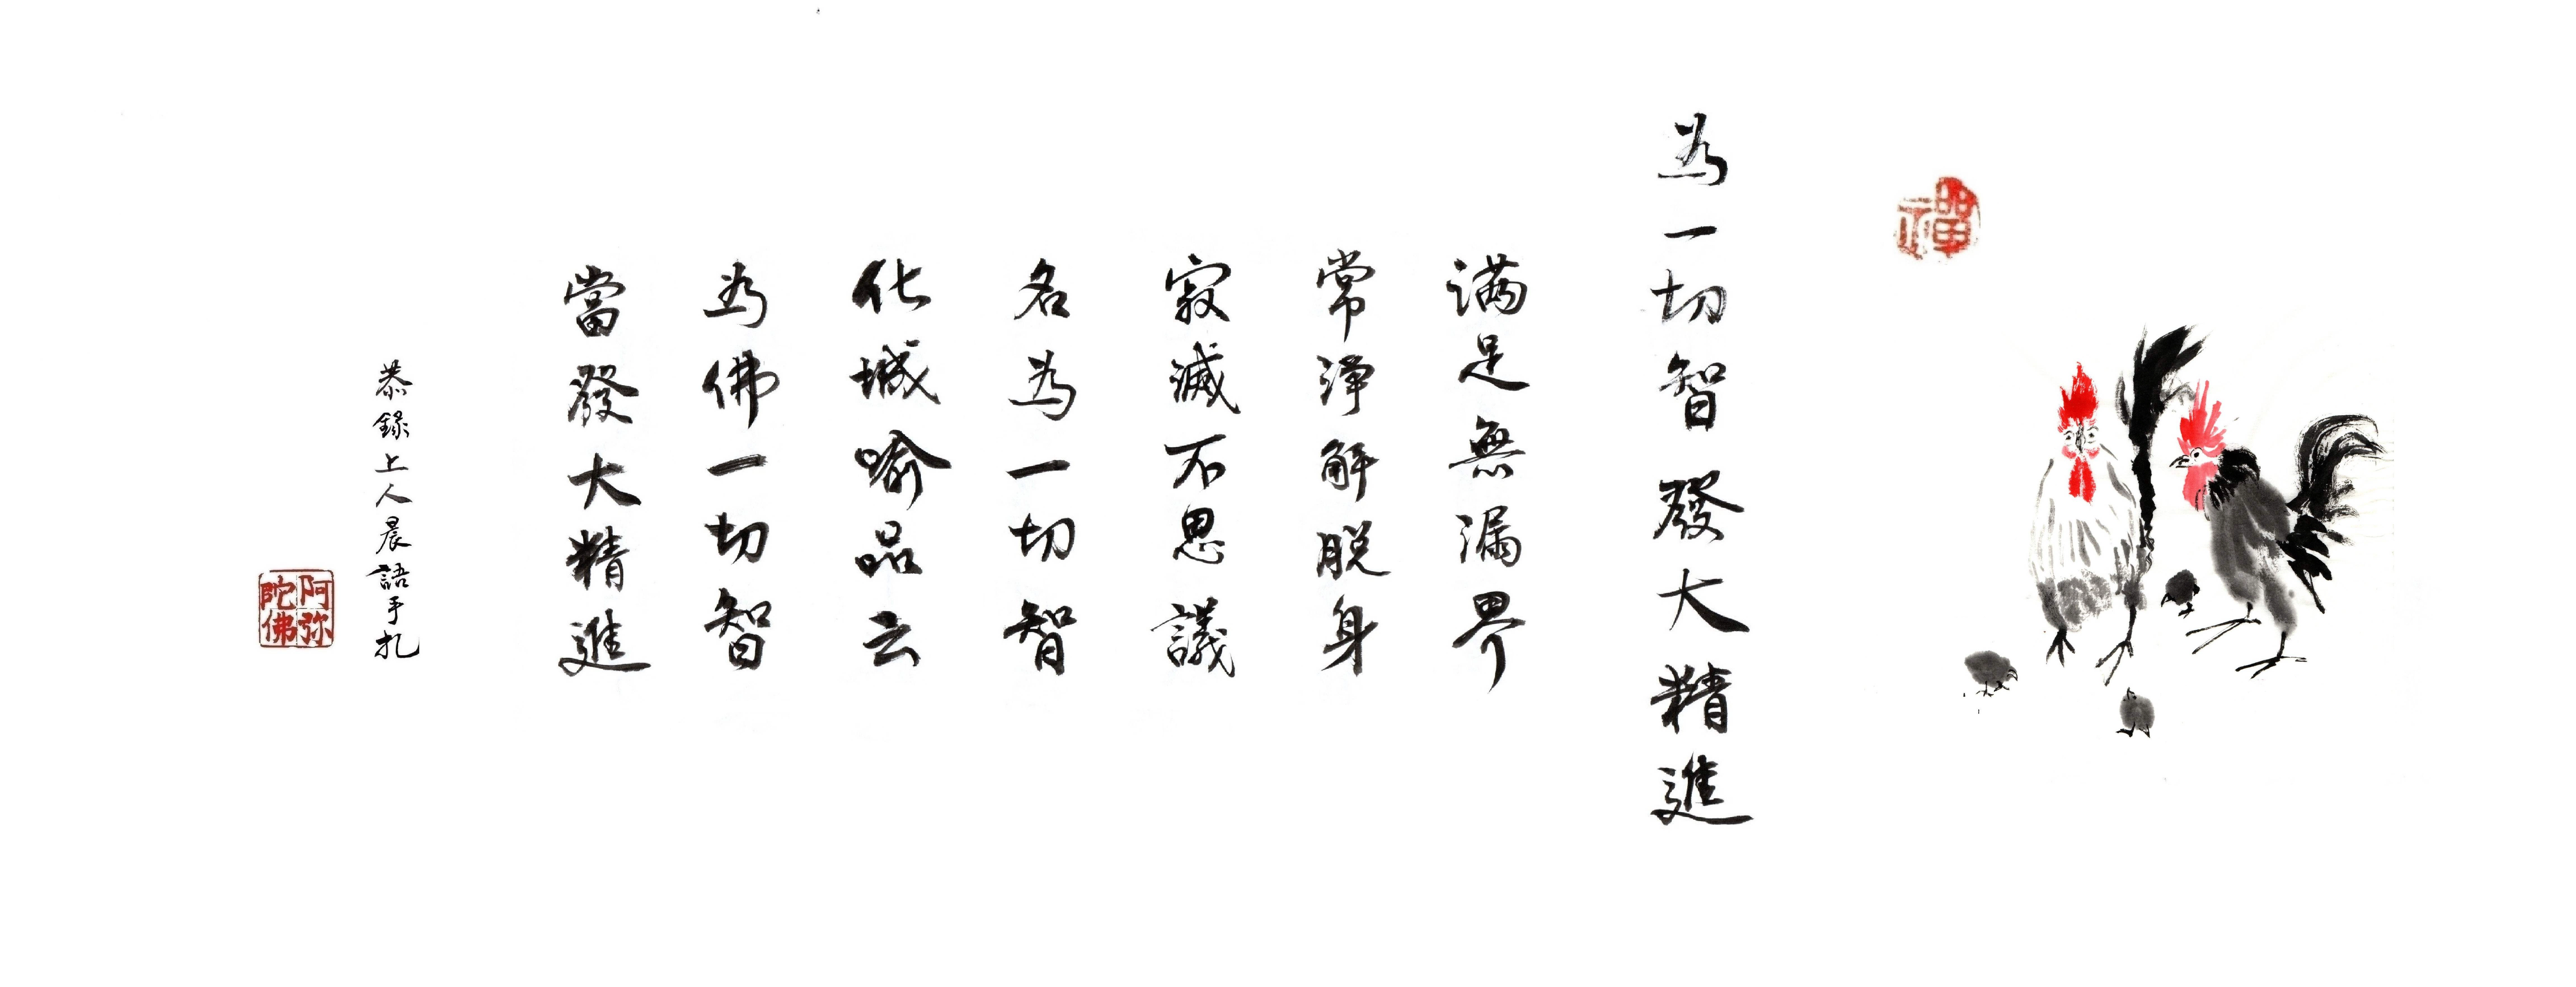 禪
為一切智發大精進
满足無漏界
常淨解脱身
寂滅不思議
名為一切智
化城喻品云
為佛一切智
當發大精進
恭錄上人晨語手扎
阿弥
陀佛